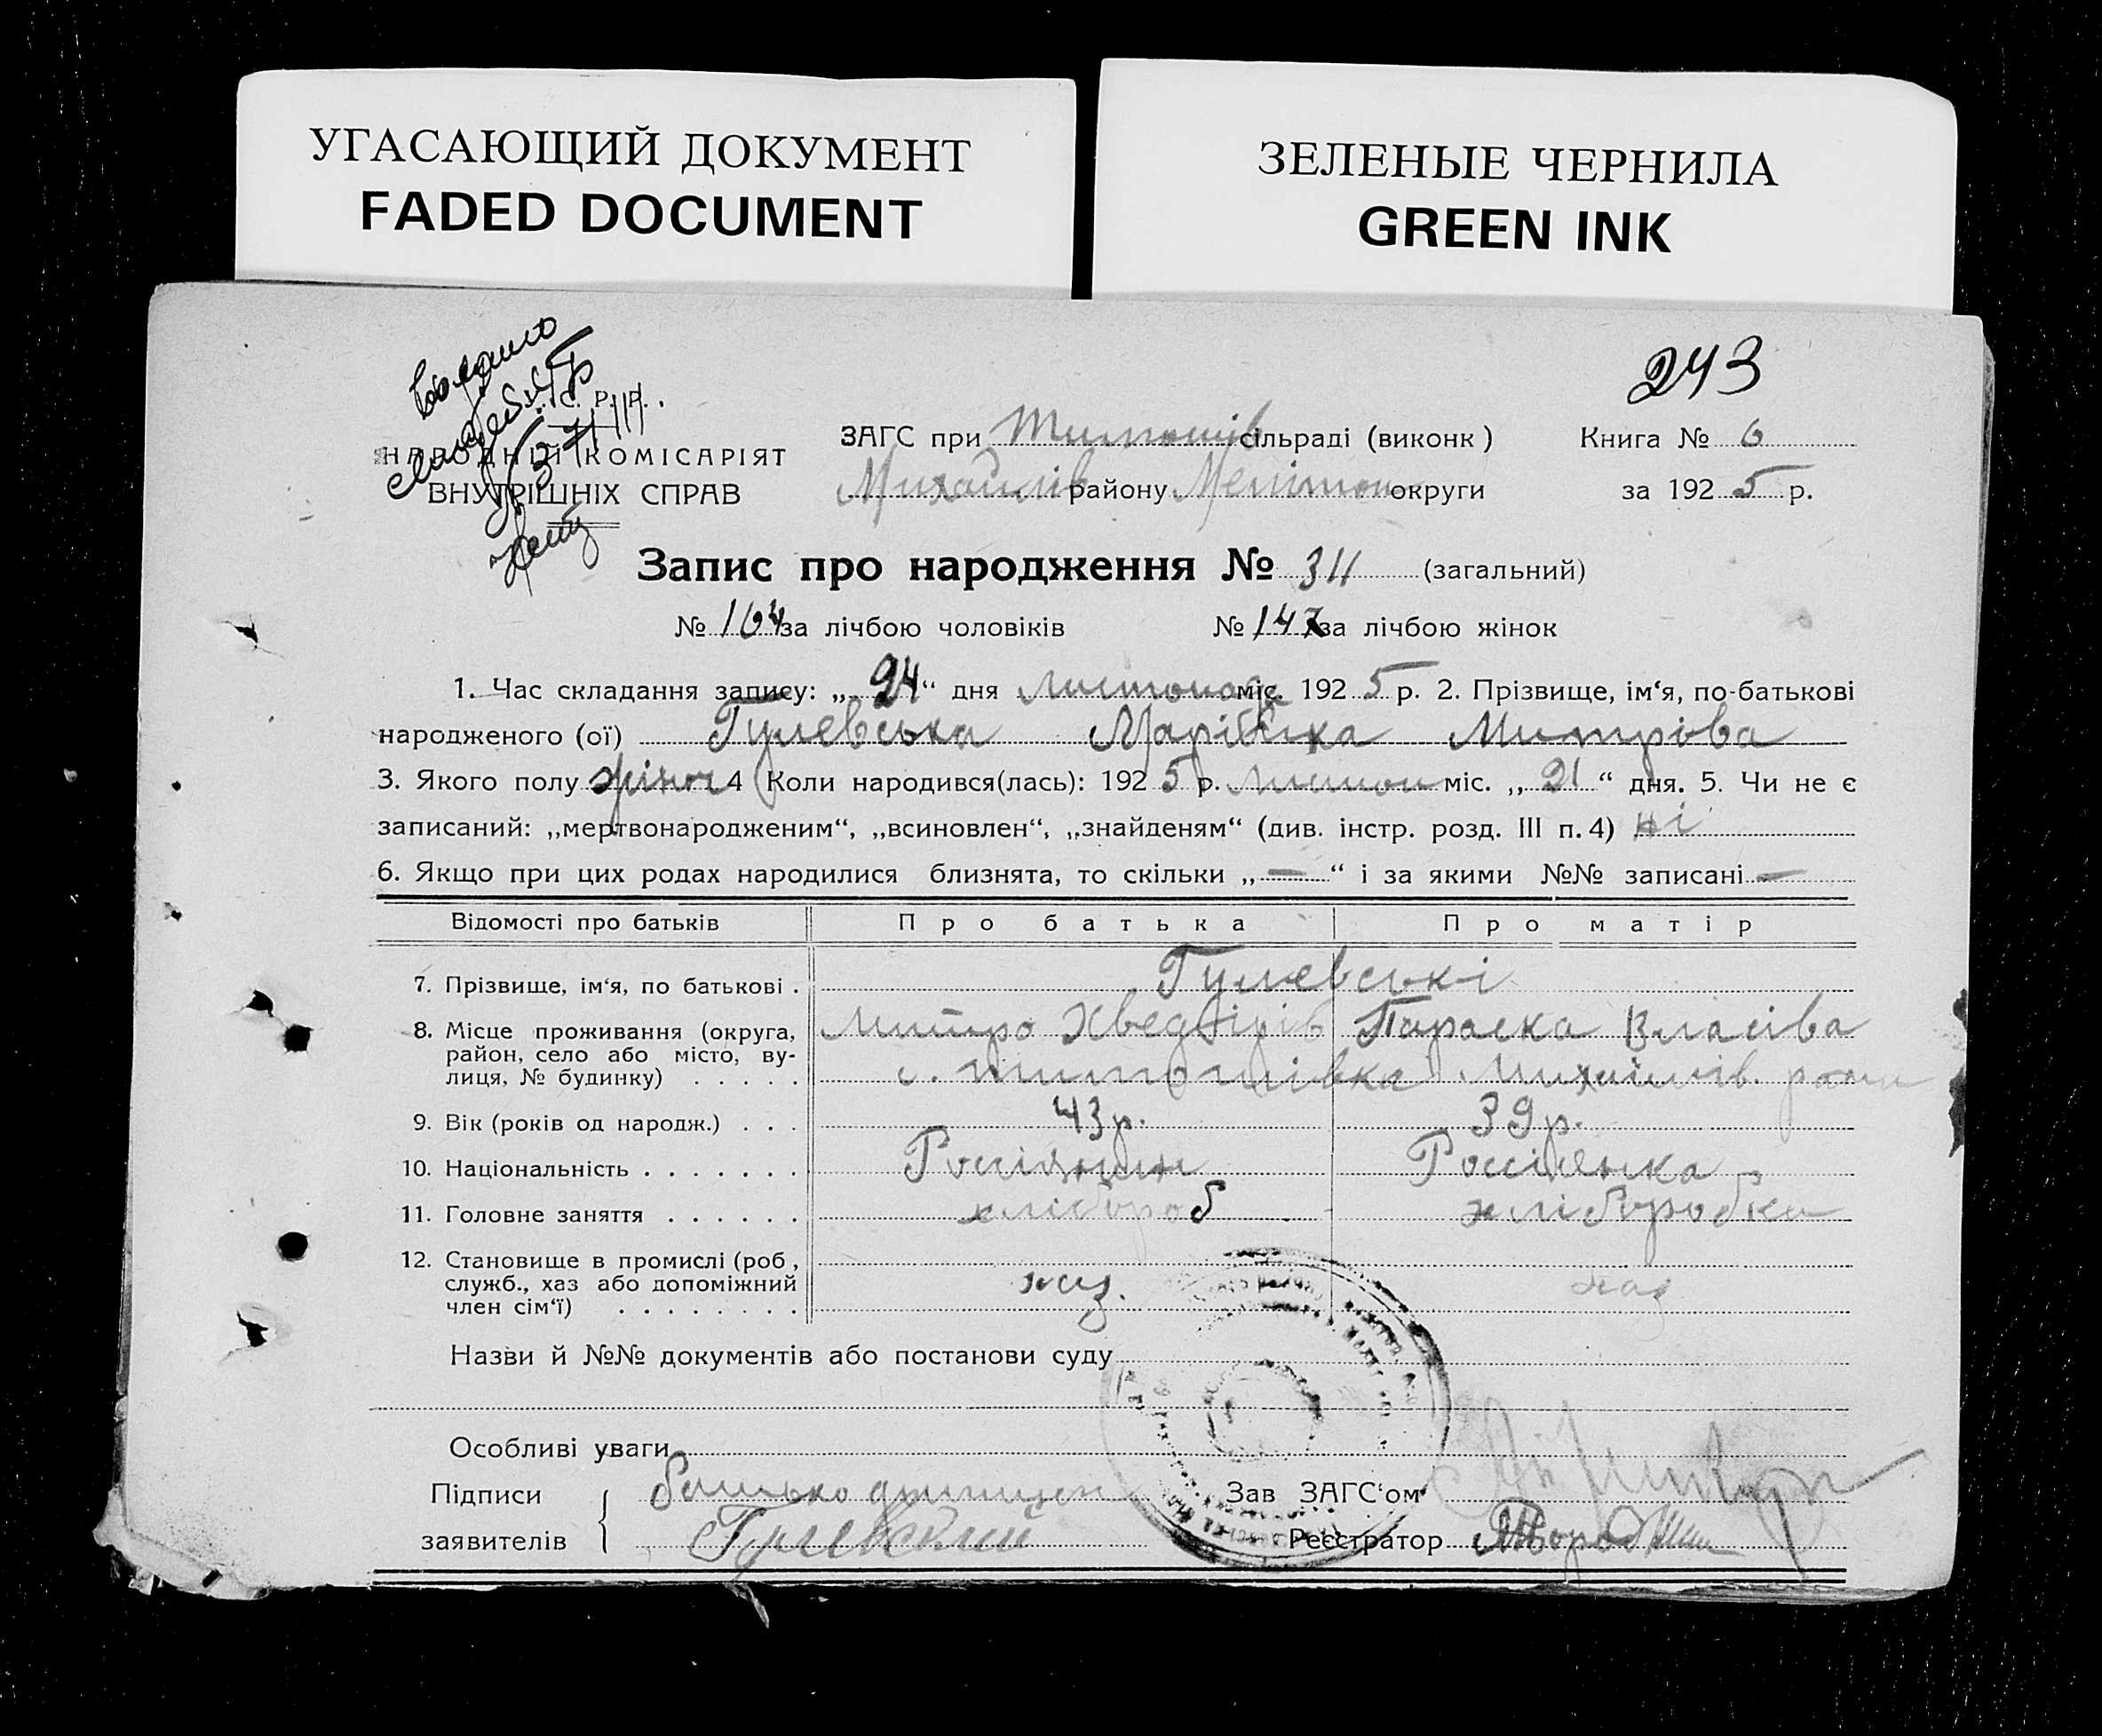 УГАСАЮЩИЙ ДОКУМЕНТ
FADED DOCUMENT
ЗЕЛЕНЫЕ ЧЕРНИЛА
GREEN INK
243
С. Р. Р.
НАРОДНІЙ КОМІСАРІЯТ
ВНУТРІШНІХ СПРАВ
ЗАГС при Тимошів сільраді (виконк)
Михайлів району Мелітоп округи
Книга № 6
за 1925 р.
Запис про народження № 311 (загальний)
№ 164 за лічбою чоловіків № 147 за лічбою жінок
1. Час складання запису: „24“ дня листопада міс. 1925 р. 2. Прізвище, ім‘я, по-батькові
народженого (ої) Гулевська Марійка Митрова
3. Якого полу жіноч 4 Коли народився(лась): 1925 р. листоп міс. „21“ дня. 5. Чи не є
записаний: „мертвонародженим“, „всиновлен“, „знайденям“ (див. інстр. розд. III п. 4) ні
6. Якщо при цих родах народилися близнята, то скільки „—“ і за якими №№ записані —
Відомості про батьків Про батька Про матір
7. Прізвище, ім‘я, по батькові . Гулевські
8. Місце проживання (округа, Митро Хведорів Параска Власіва
район, село або місто, ву-
лиця, № будинку) . . . . . с. Тимошівка Михайлів. району
9. Вік (років од народж.) . . . 43 р. 39 р.
10. Національність . . . . . . . Россіянин Россіянка
11. Головне заняття . . . . . . хлібороб хліборобка
12. Становище в промислі (роб,
служб., хаз або допоміжний хаз. хаз
член сім‘ї) . . . . . . . .
Назви й №№ документів або постанови суду
Особливі уваги
Підписи батько дитини Зав ЗАГС‘ом
заявителів Гулевский Реєстратор